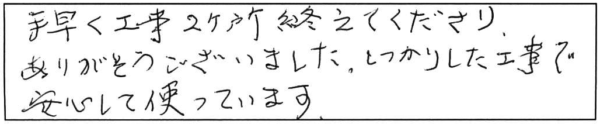 手早く工事2ヶ所終えてくださり、
ありがとうございました。しっかりした工事で
安心して使っています。